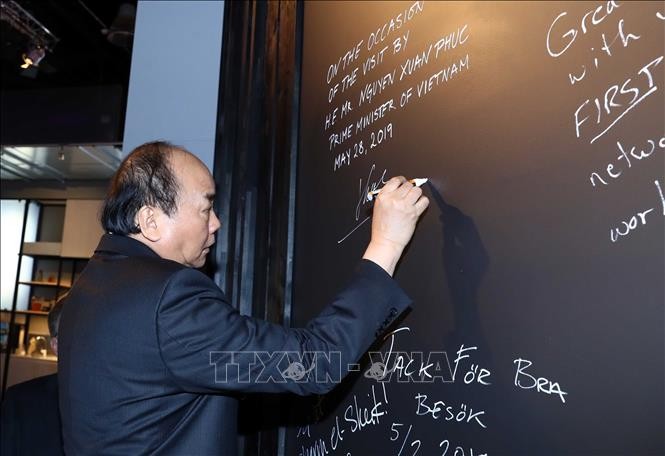 ON THE OCCASION
OF THE VISIT BY
H.E MR NGUYEN XUAN PHUC
PRIME MINISTER OF VIETNAM
MAY 28, 2019
Grea
with
FIRST
netwo
wor
TTXVN - VNA
TACK FÖR BRA
BESÖK
el-Sheik!
5/2